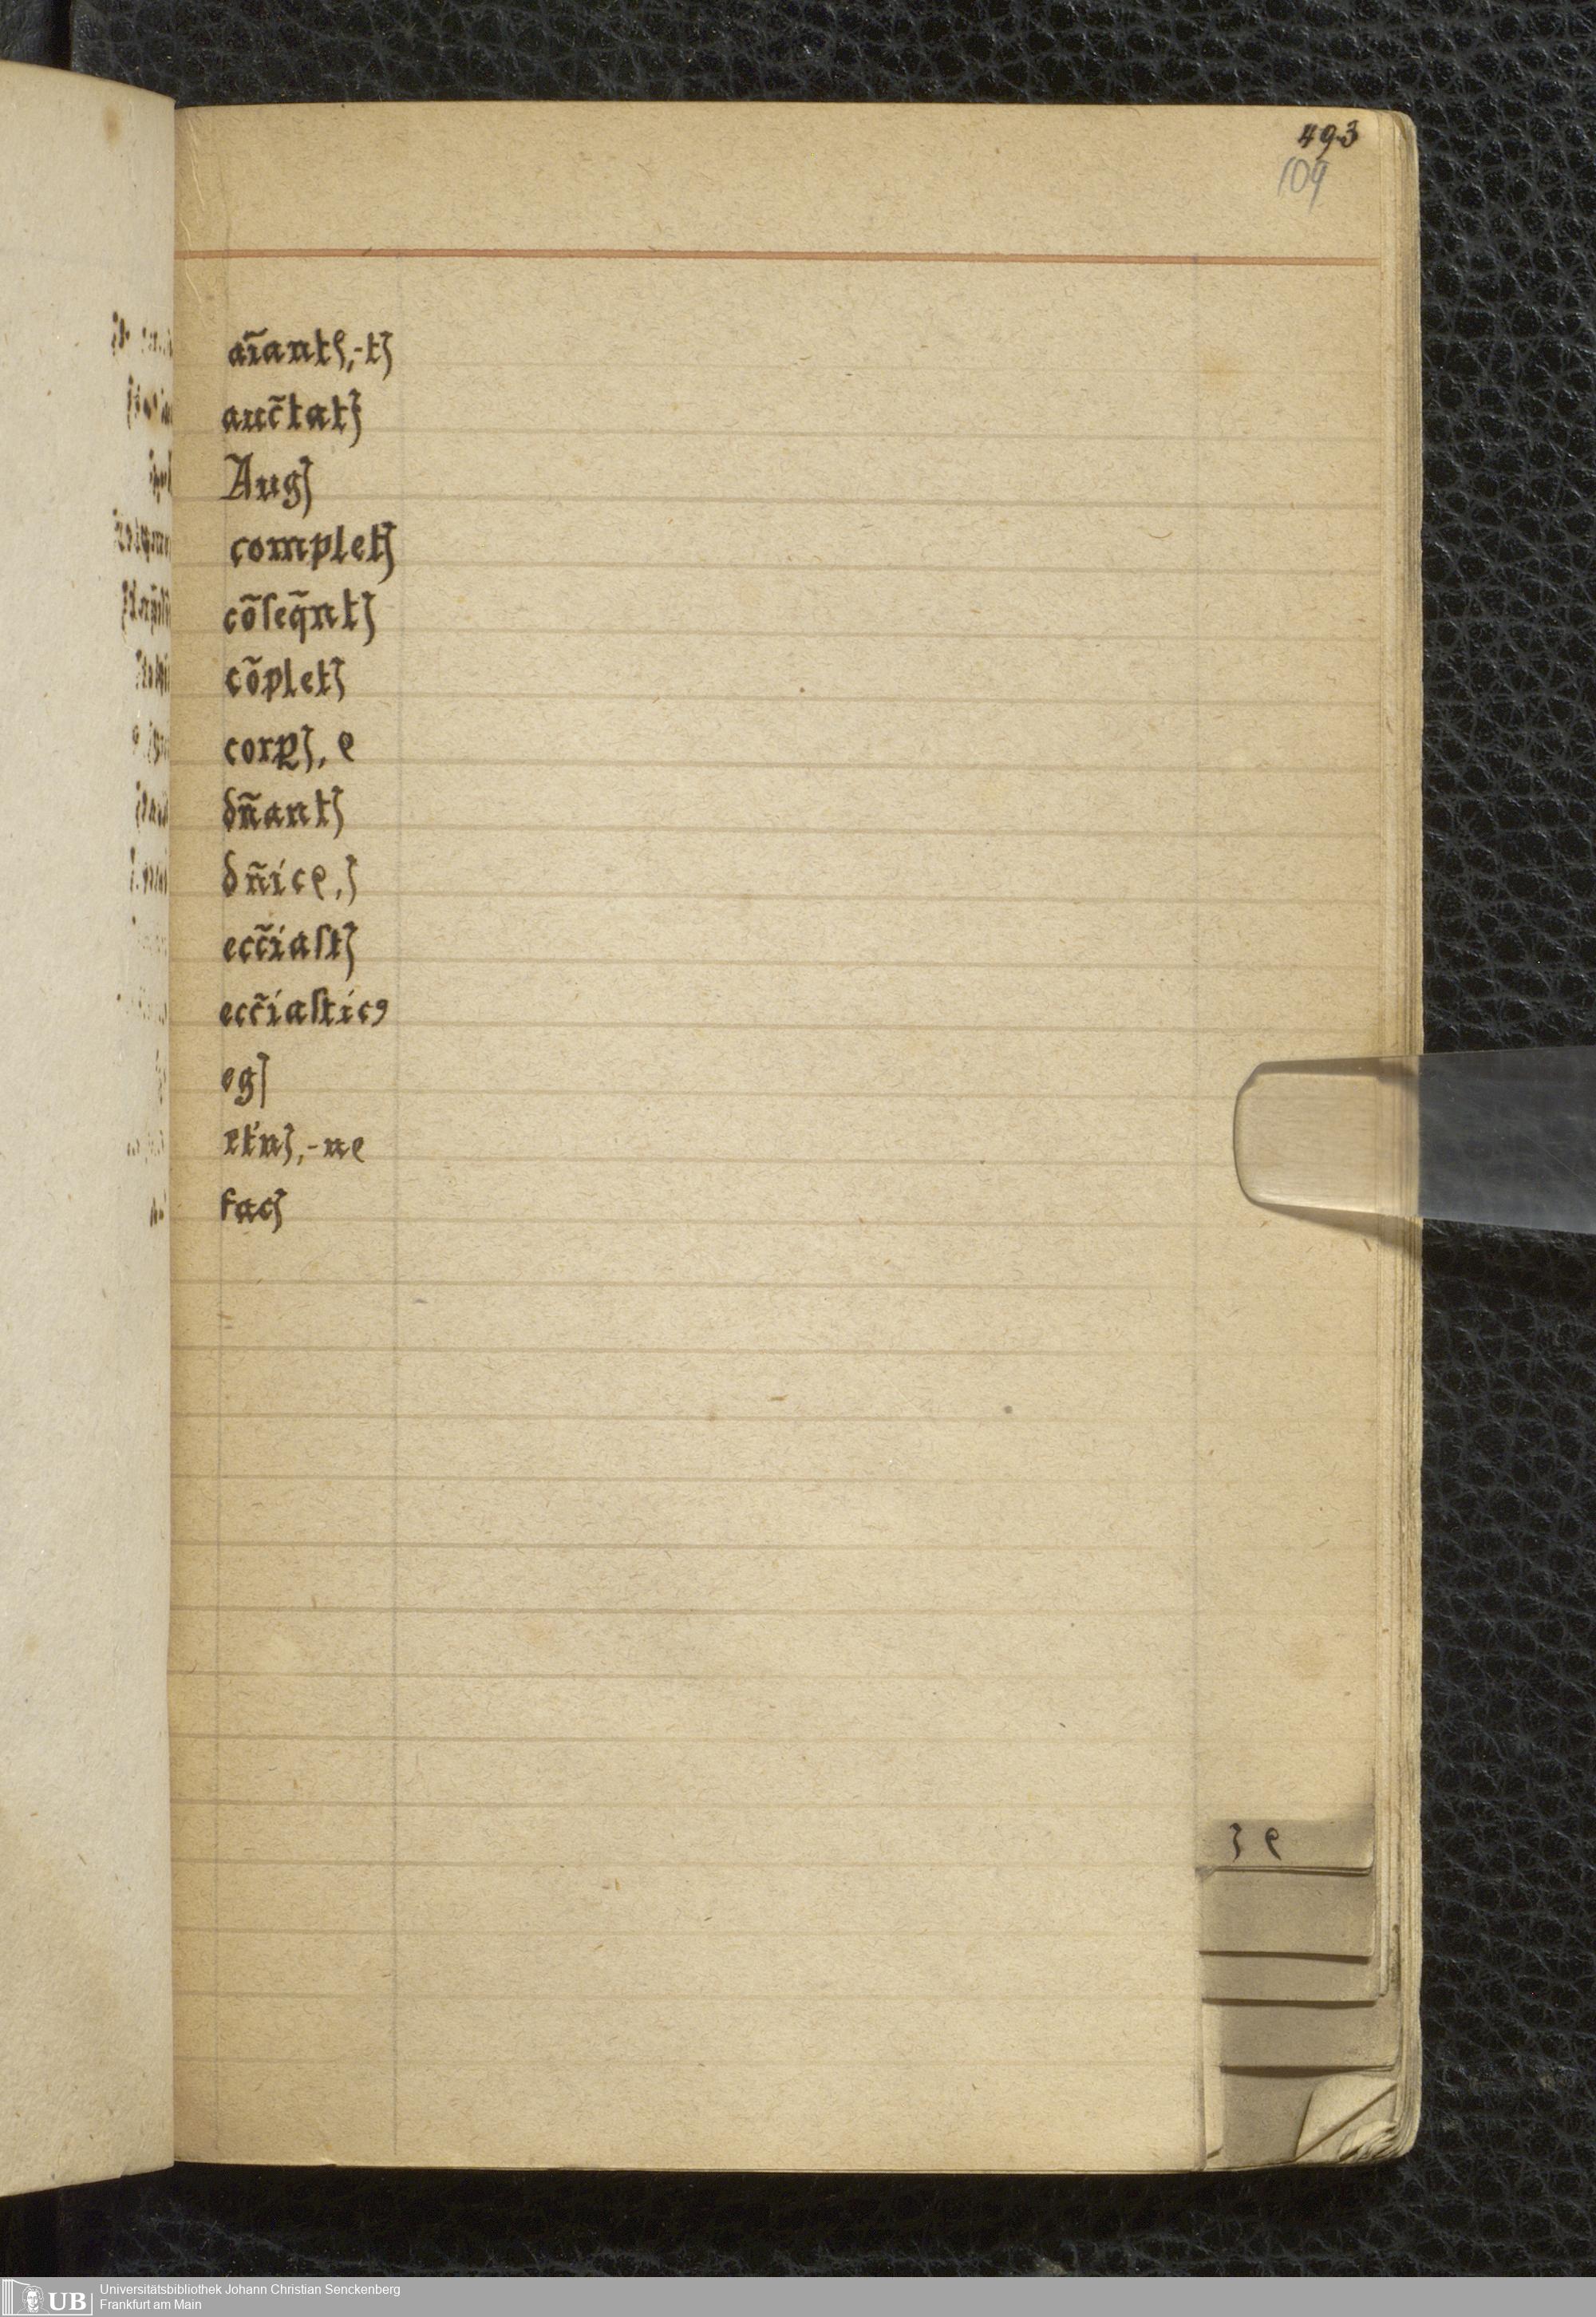 493
109
aīantꝭ,-tʒ
auc̄tatʒ
Augʒ
completʒ
cōſeq̄ntʒ
cōpletʒ
corpʒ, ꝭ
dn̄antʒ
dn̄icꝭ,ʒ
ecc̄iaſtʒ
ecc̄iaſticꝯ
egʒ
et̄nʒ,-nꝭ
facʒ
ʒ ꝭ
UB Universitätsbibliothek Johann Christian Senckenberg
Frankfurt am Main